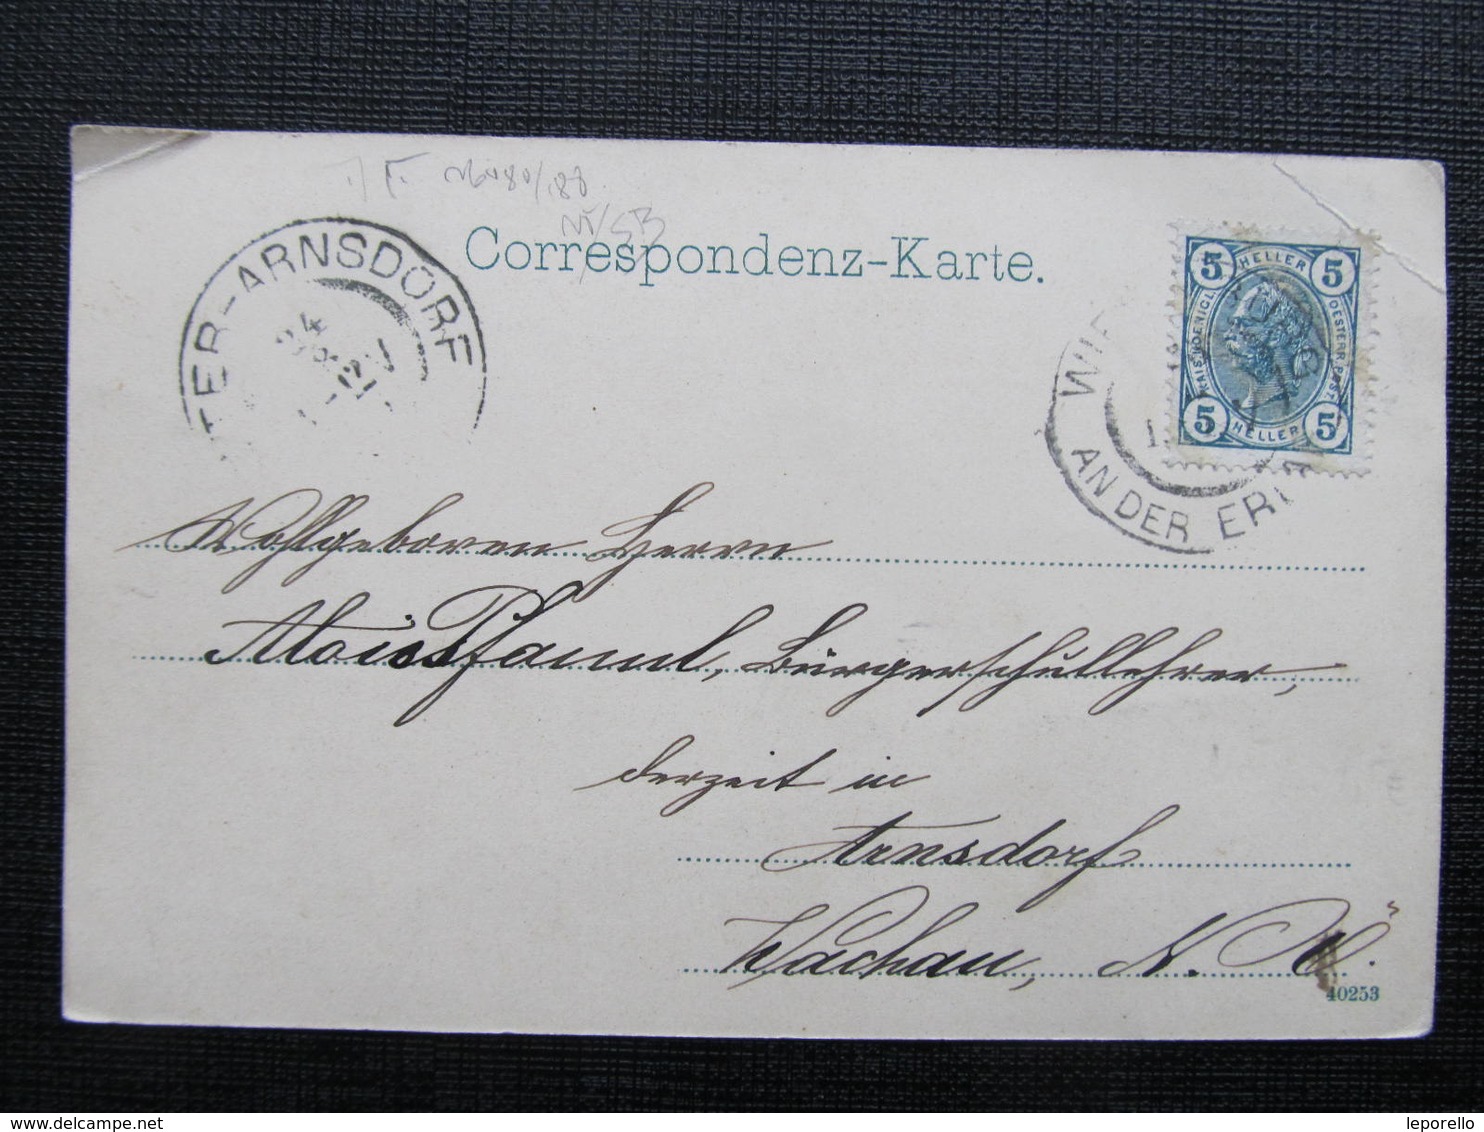 Correspondenz-Karte.
TER-ARNSDORF
5 HELLER 5
KAIS. KOENIGL. OESTERR. POST.
5 HELLER 5
AN DER
Wohlgeboren Herrn
Alois Pfannl, Bürgerschullehrer,
derzeit in
Arnsdorf
Wachau, N. Ö.
40253
www.delcampe.net
leporello